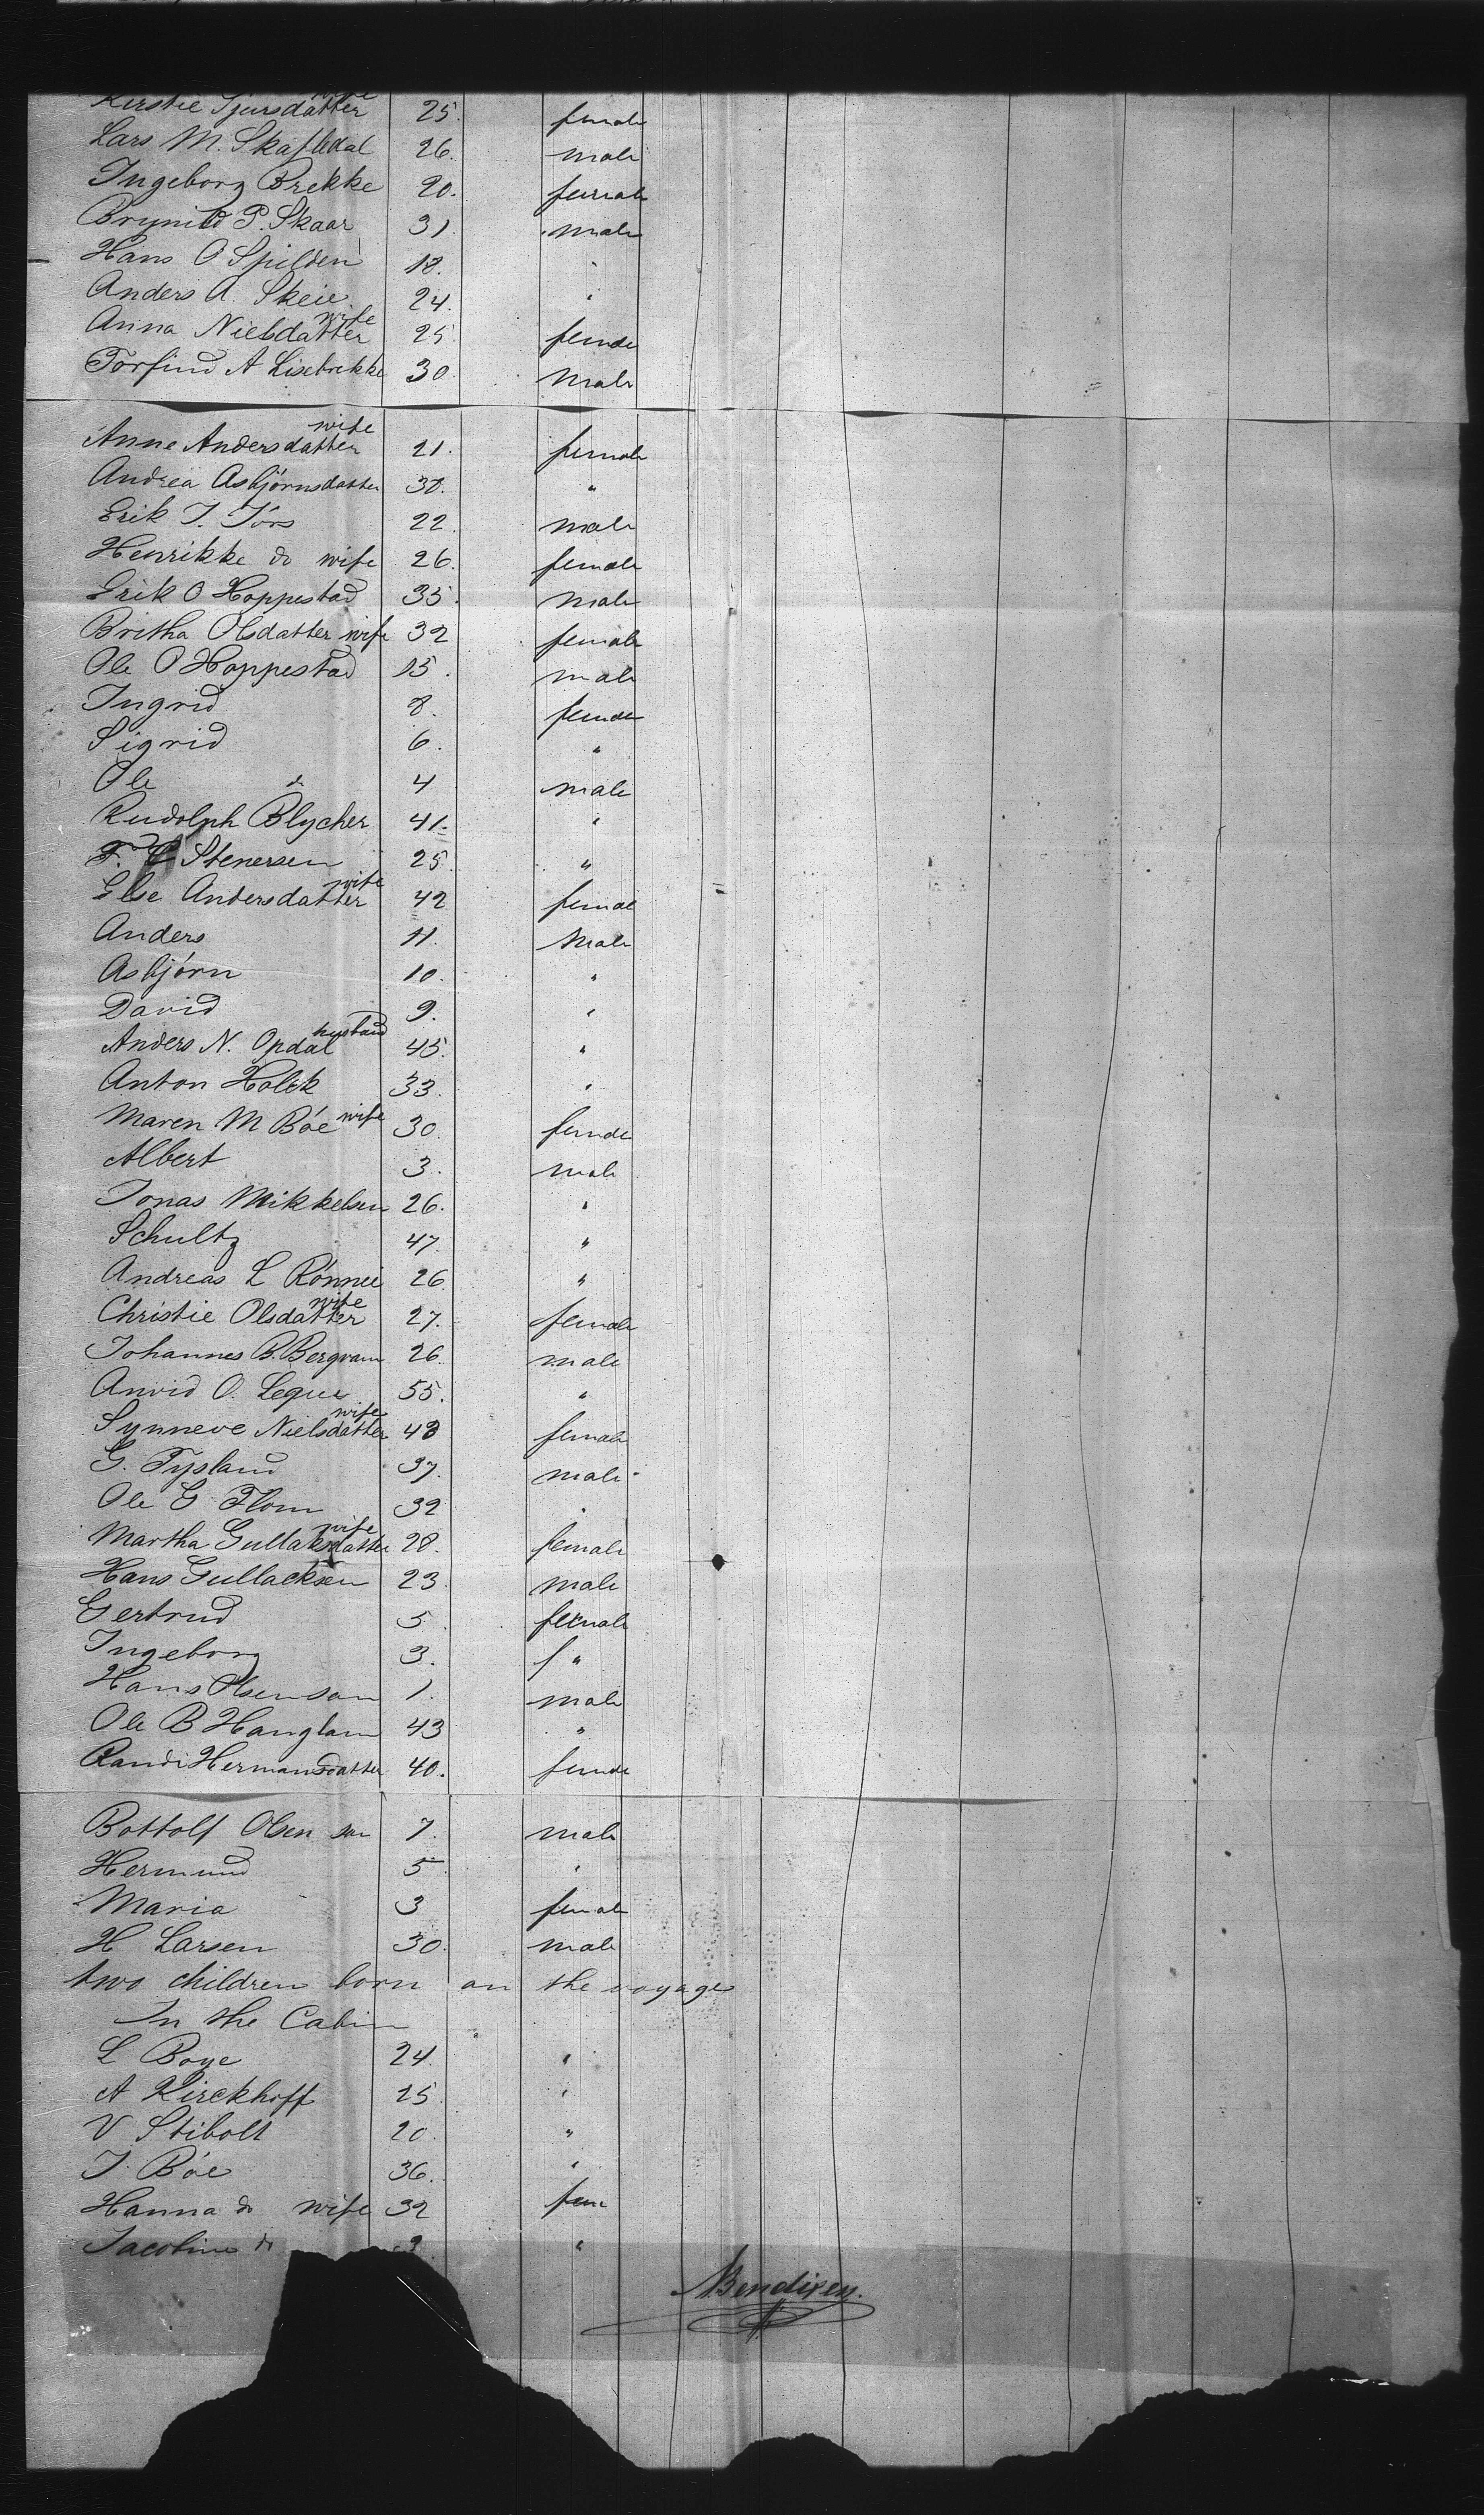 Kirstie Sjursdatter wife 25. female
Lars M. Skafledal 26. male
Ingeborg Brekke 20. female
Brynild P. Skaar 31. male
Hans O Spilden 18. "
Anders A. Skeie 24. "
Anna Nielsdatter wife 25 female
Torfind A Lisebrekke 30. Male
Anne Andersdatter wife 21. female
Andrea Asbjörnsdatter 30. "
Erik J. Törs 22 male
Henrikke do wife 26. female
Erik O Hoppestad 35. male
Britha Olsdatter wife 32 female
Ole O Hoppestad 15. male
Ingrid 8. female
Sigrid 6. "
Ole do 4 male
Rudolph Blycher 41. "
F. Stenersen 25. "
Else Andersdatter wife 42 female
Anders 11. Male
Asbjörn 10. "
David 9. "
Anders N. Opdal husband 45. "
Anton Holck 33. "
Maren M Böe wife 30. female
Albert 3. male
Jonas Mikkelsen 26. "
Schultz 47. "
Andreas L Rönnei 26 "
Christie Olsdatter wife 27. female
Johannes B. Bergvam 26. male
Anvid O. Legue 55. "
Synneve Nielsdatter wife 48 female
G. Tysland 37. male
Ole G Flom 32 "
Martha Gullaksdatter wife 28. female
Hans Gullacksen 23. male
Gertrud 5 female
Ingeborg 3. f "
Hans Olsen son 1. male
Ole B Hanglam 43 "
Randi Hermansdatter 40. female
Bottolf Olsen son 7. male
Hermund 5. "
Maria 3 female
H Larsen 30. male
two children born on the voyage
In the Cabin
L Boye 24. "
A Kirckhoff 25 "
V Stibolt 20. "
J. Böe 36. "
Hanna do wife 32 fem
Jacobine do 3 "
Bendixen.